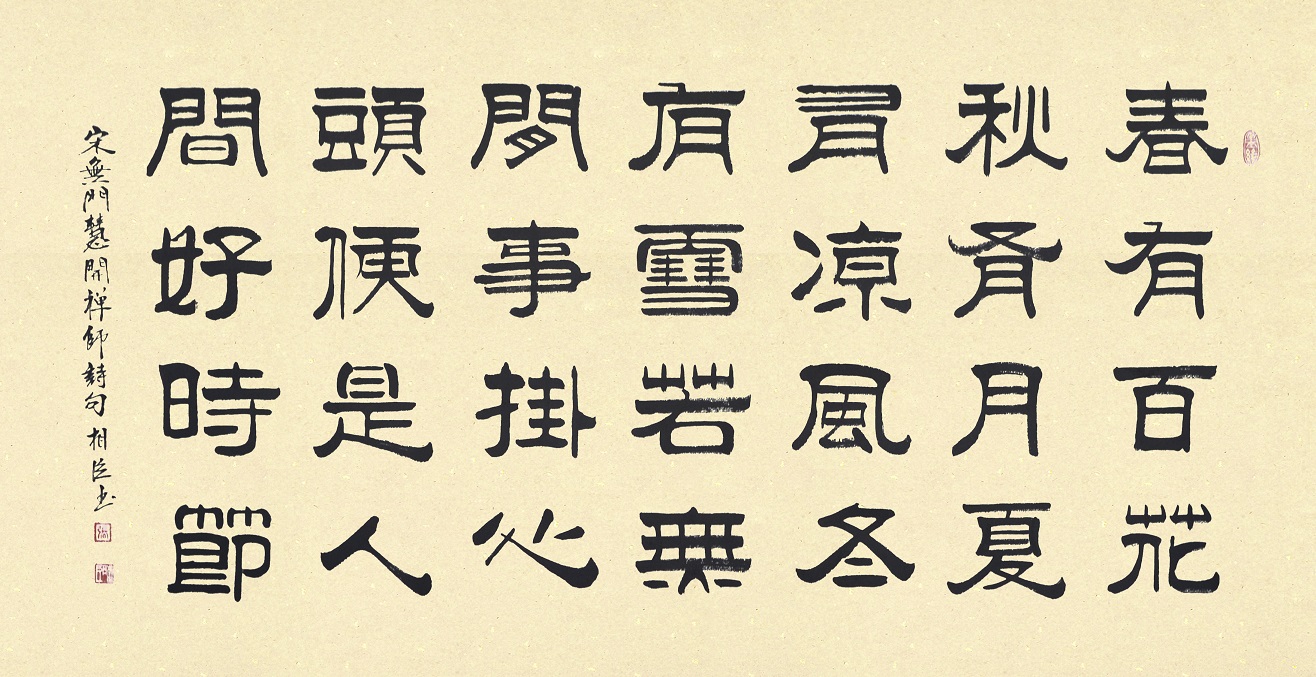 春有百花
秋有月夏
有凉風冬
有雪若無
閒事掛心
頭便是人
間好時節
宋無門慧開禅師詩句 相臣书